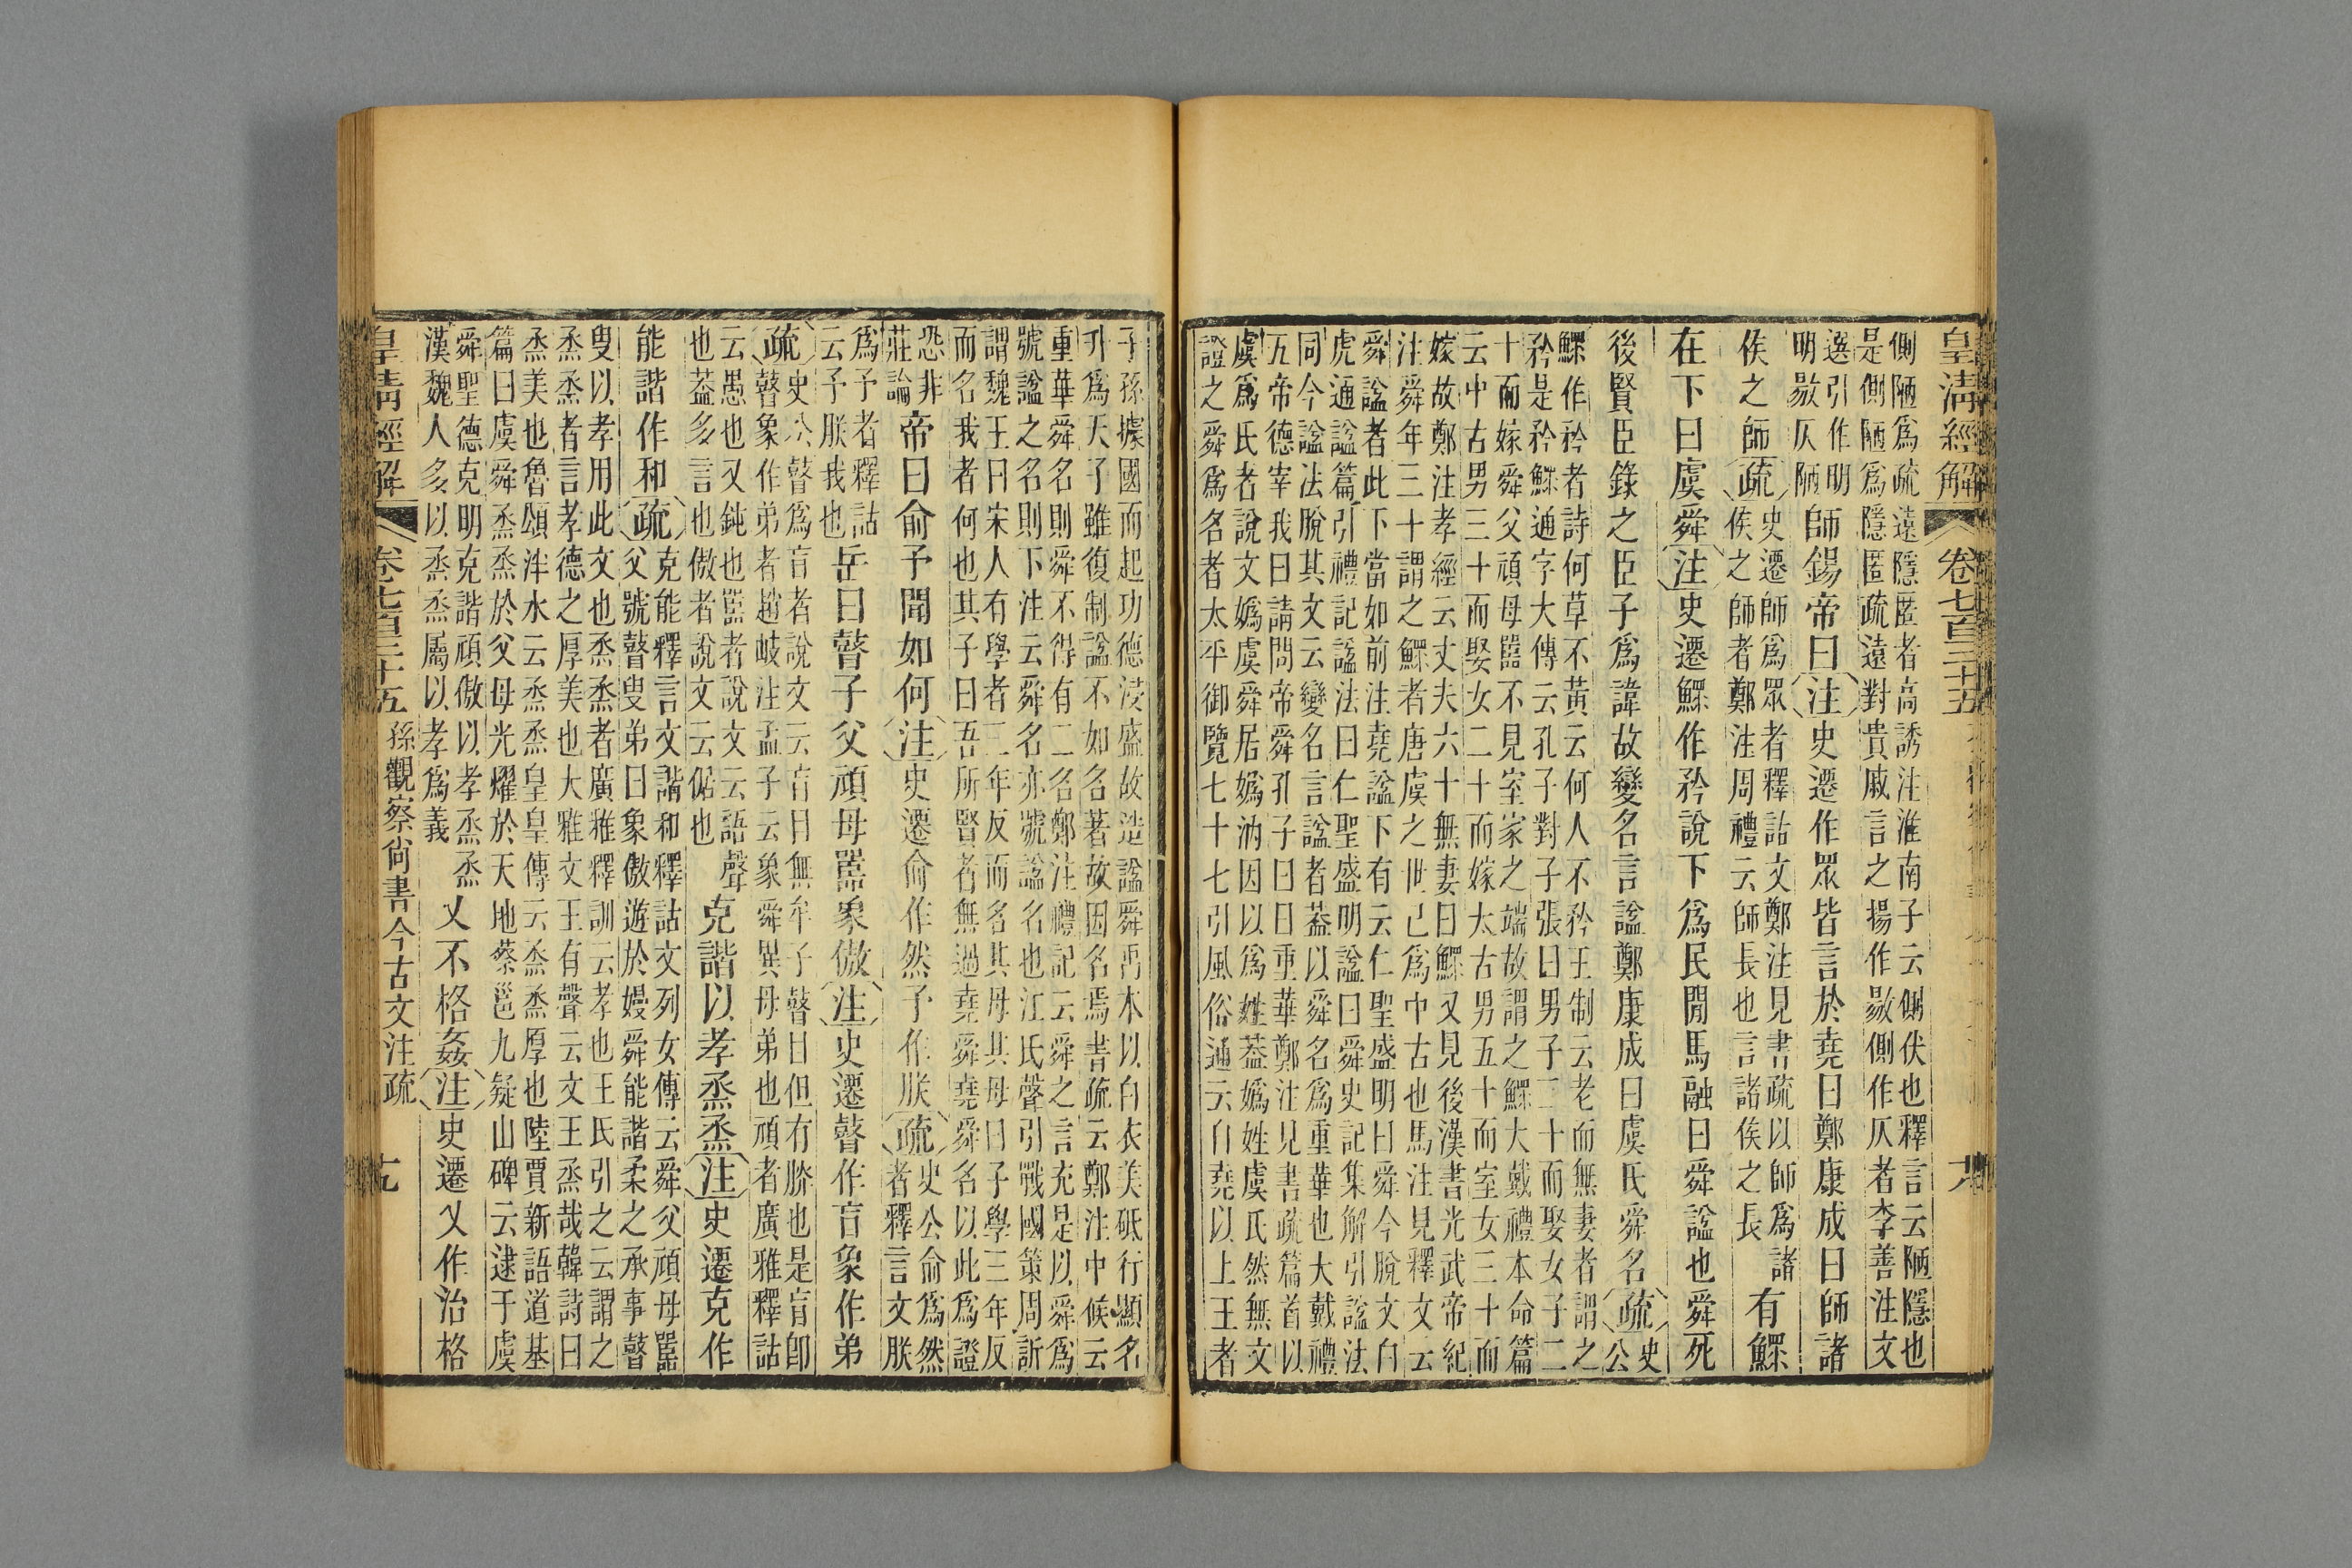 皇清經解
卷七百三十五
側陋爲疏遠隱匿者高誘注淮南子云側伏也釋言云陋隱也
是側陋爲隱匿疏遠對貴戚言之揚作敭側作仄者李善注文
選引作明
明敭仄陋
師錫帝曰
注
史遷作眾皆言於堯曰鄭康成曰師諸
侯之師
疏
史遷師爲眾者釋詁文鄭注見書疏以師爲諸
侯之師者鄭注周禮云師長也言諸侯之長
有鰥
在下曰虞舜
注
史遷鰥作矜說下爲民閒馬融曰舜諡也舜死
後賢臣錄之臣子爲諱故變名言諡鄭康成曰虞氏舜名
疏
史
公
鰥作矜者詩何草不黃云何人不矜王制云老而無妻者謂之
矜是矜鰥通字大傳云孔子對子張曰男子三十而娶女子二
十而嫁舜父頑母嚚不見室家之端故謂之鰥大戴禮本命篇
云中古男三十而娶女二十而嫁太古男五十而室女三十而
嫁故鄭注孝經云丈夫六十無妻曰鰥又見後漢書光武帝紀
注舜年三十謂之鰥者唐虞之世已爲中古也馬注見釋文云
舜諡者此下當如前注堯諡下有云仁聖盛明曰舜今脫文白
虎通諡篇引禮記諡法曰仁聖盛明諡曰舜史記集解引諡法
同今諡法脫其文云變名言諡者葢以舜名爲重華也大戴禮
五帝德宰我曰請問帝舜孔子曰曰重華鄭注見書疏篇首以
虞爲氏者說文嬀虞舜居嬀汭因以爲姓葢嬀姓虞氏然無文
證之舜爲名者太平御覽七十七引風俗通云自堯以上王者
子孫據國而起功德浸盛故造諡舜禹本以白衣美砥行顯名
升爲天子雖復制諡不如名著故因名焉書疏云鄭注中候云
重華舜名則舜不得有二名鄭注禮記云舜之言充是以舜爲
號諡之名則下注云舜名亦號諡名也江氏聲引戰國策周訢
謂魏王曰宋人有學者三年反而名其母其母曰子學三年反
而名我者何也其子曰吾所賢者無過堯舜堯舜名以此爲證
恐非
莊論
帝曰俞予聞如何
注
史遷俞作然予作朕
疏
史公俞爲然
者釋言文朕
爲予者釋詁
云予朕我也
岳曰瞽子父頑母嚚象傲
注
史遷瞽作盲象作弟
疏
史公瞽爲盲者說文云盲目無牟子瞽目但有朕也是盲卽
瞽象作弟者趙岐注孟子云象舜異母弟也頑者廣雅釋詁
云愚也又鈍也嚚者說文云語聲
也葢多言也傲者說文云倨也
克諧以孝烝烝
注
史遷克作
能諧作和
疏
克能釋言文諧和釋詁文列女傳云舜父頑母嚚
父號瞽叟弟曰象傲遊於嫚舜能諧柔之承事瞽
叟以孝用此文也烝烝者廣雅釋訓云孝也王氏引之云謂之
烝烝者言孝德之厚美也大雅文王有聲云文王烝哉韓詩曰
烝美也魯頌泮水云烝烝皇皇傳云烝烝厚也陸賈新語道基
篇曰虞舜烝烝於父母光燿於天地蔡邕九疑山碑云逮于虞
舜聖德克明克諧頑傲以孝烝烝
漢魏人多以烝烝屬以孝爲義
乂不格姦
注
史遷乂作治格
皇清經解
卷七百三十五
孫觀察尙書今古文注疏